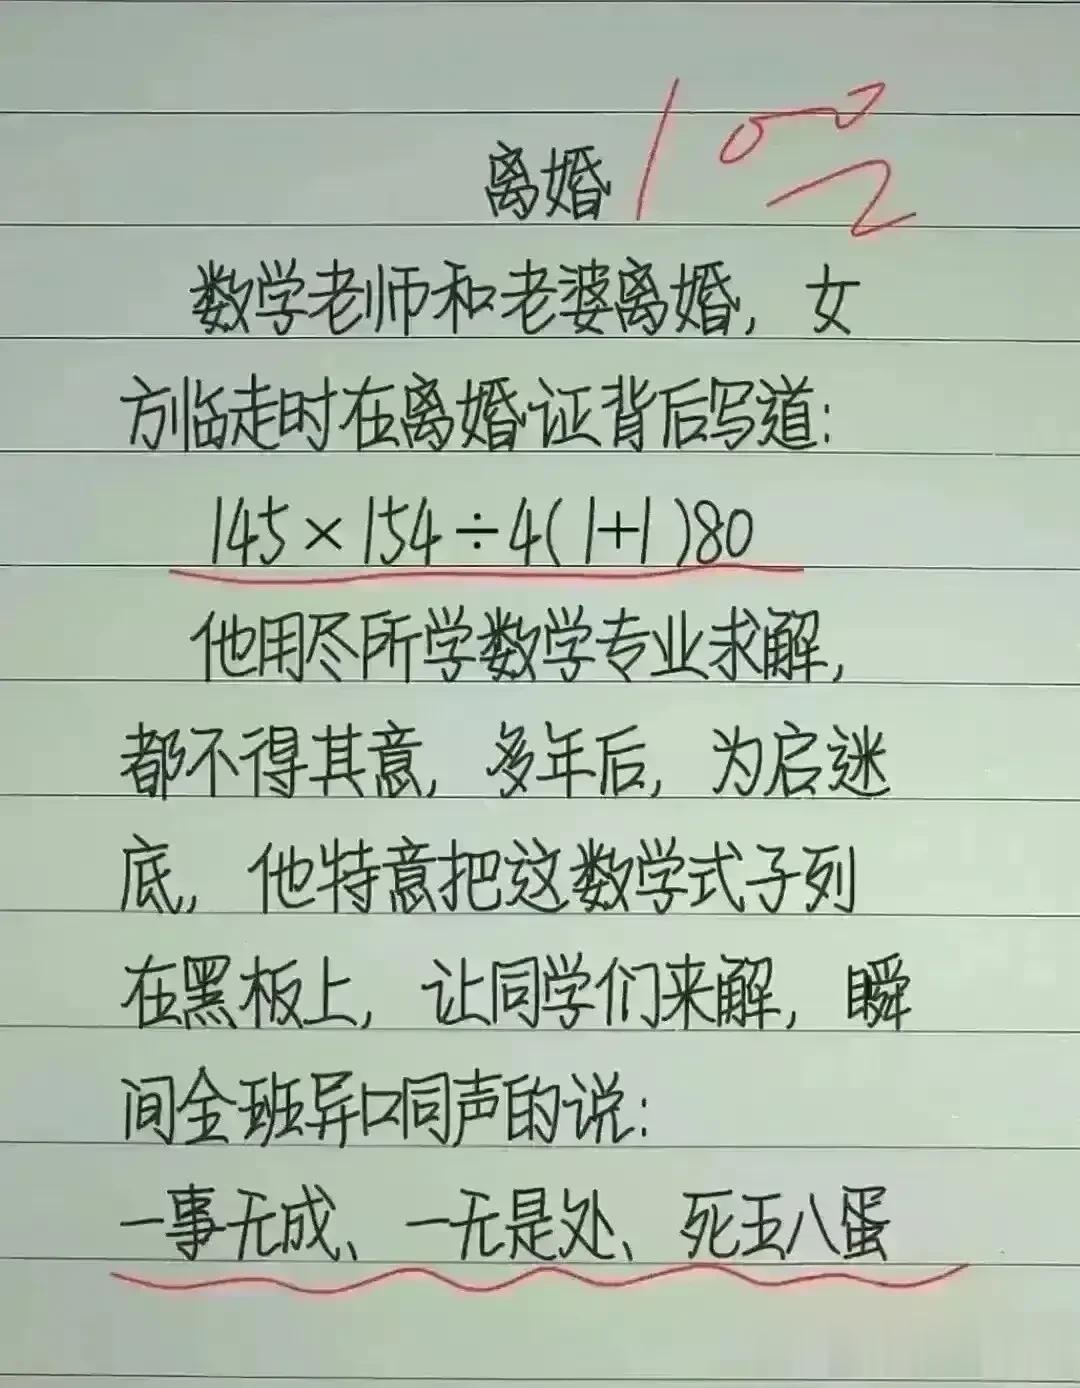 离婚 100
数学老师和老婆离婚，女
方临走时在离婚证背后写道：
145×154÷4(1+1)80
他用尽所学数学专业求解，
都不得其意，多年后，为启迷
底，他特意把这数学式子列
在黑板上，让同学们来解，瞬
间全班异口同声的说：
一事无成、一无是处、死王八蛋